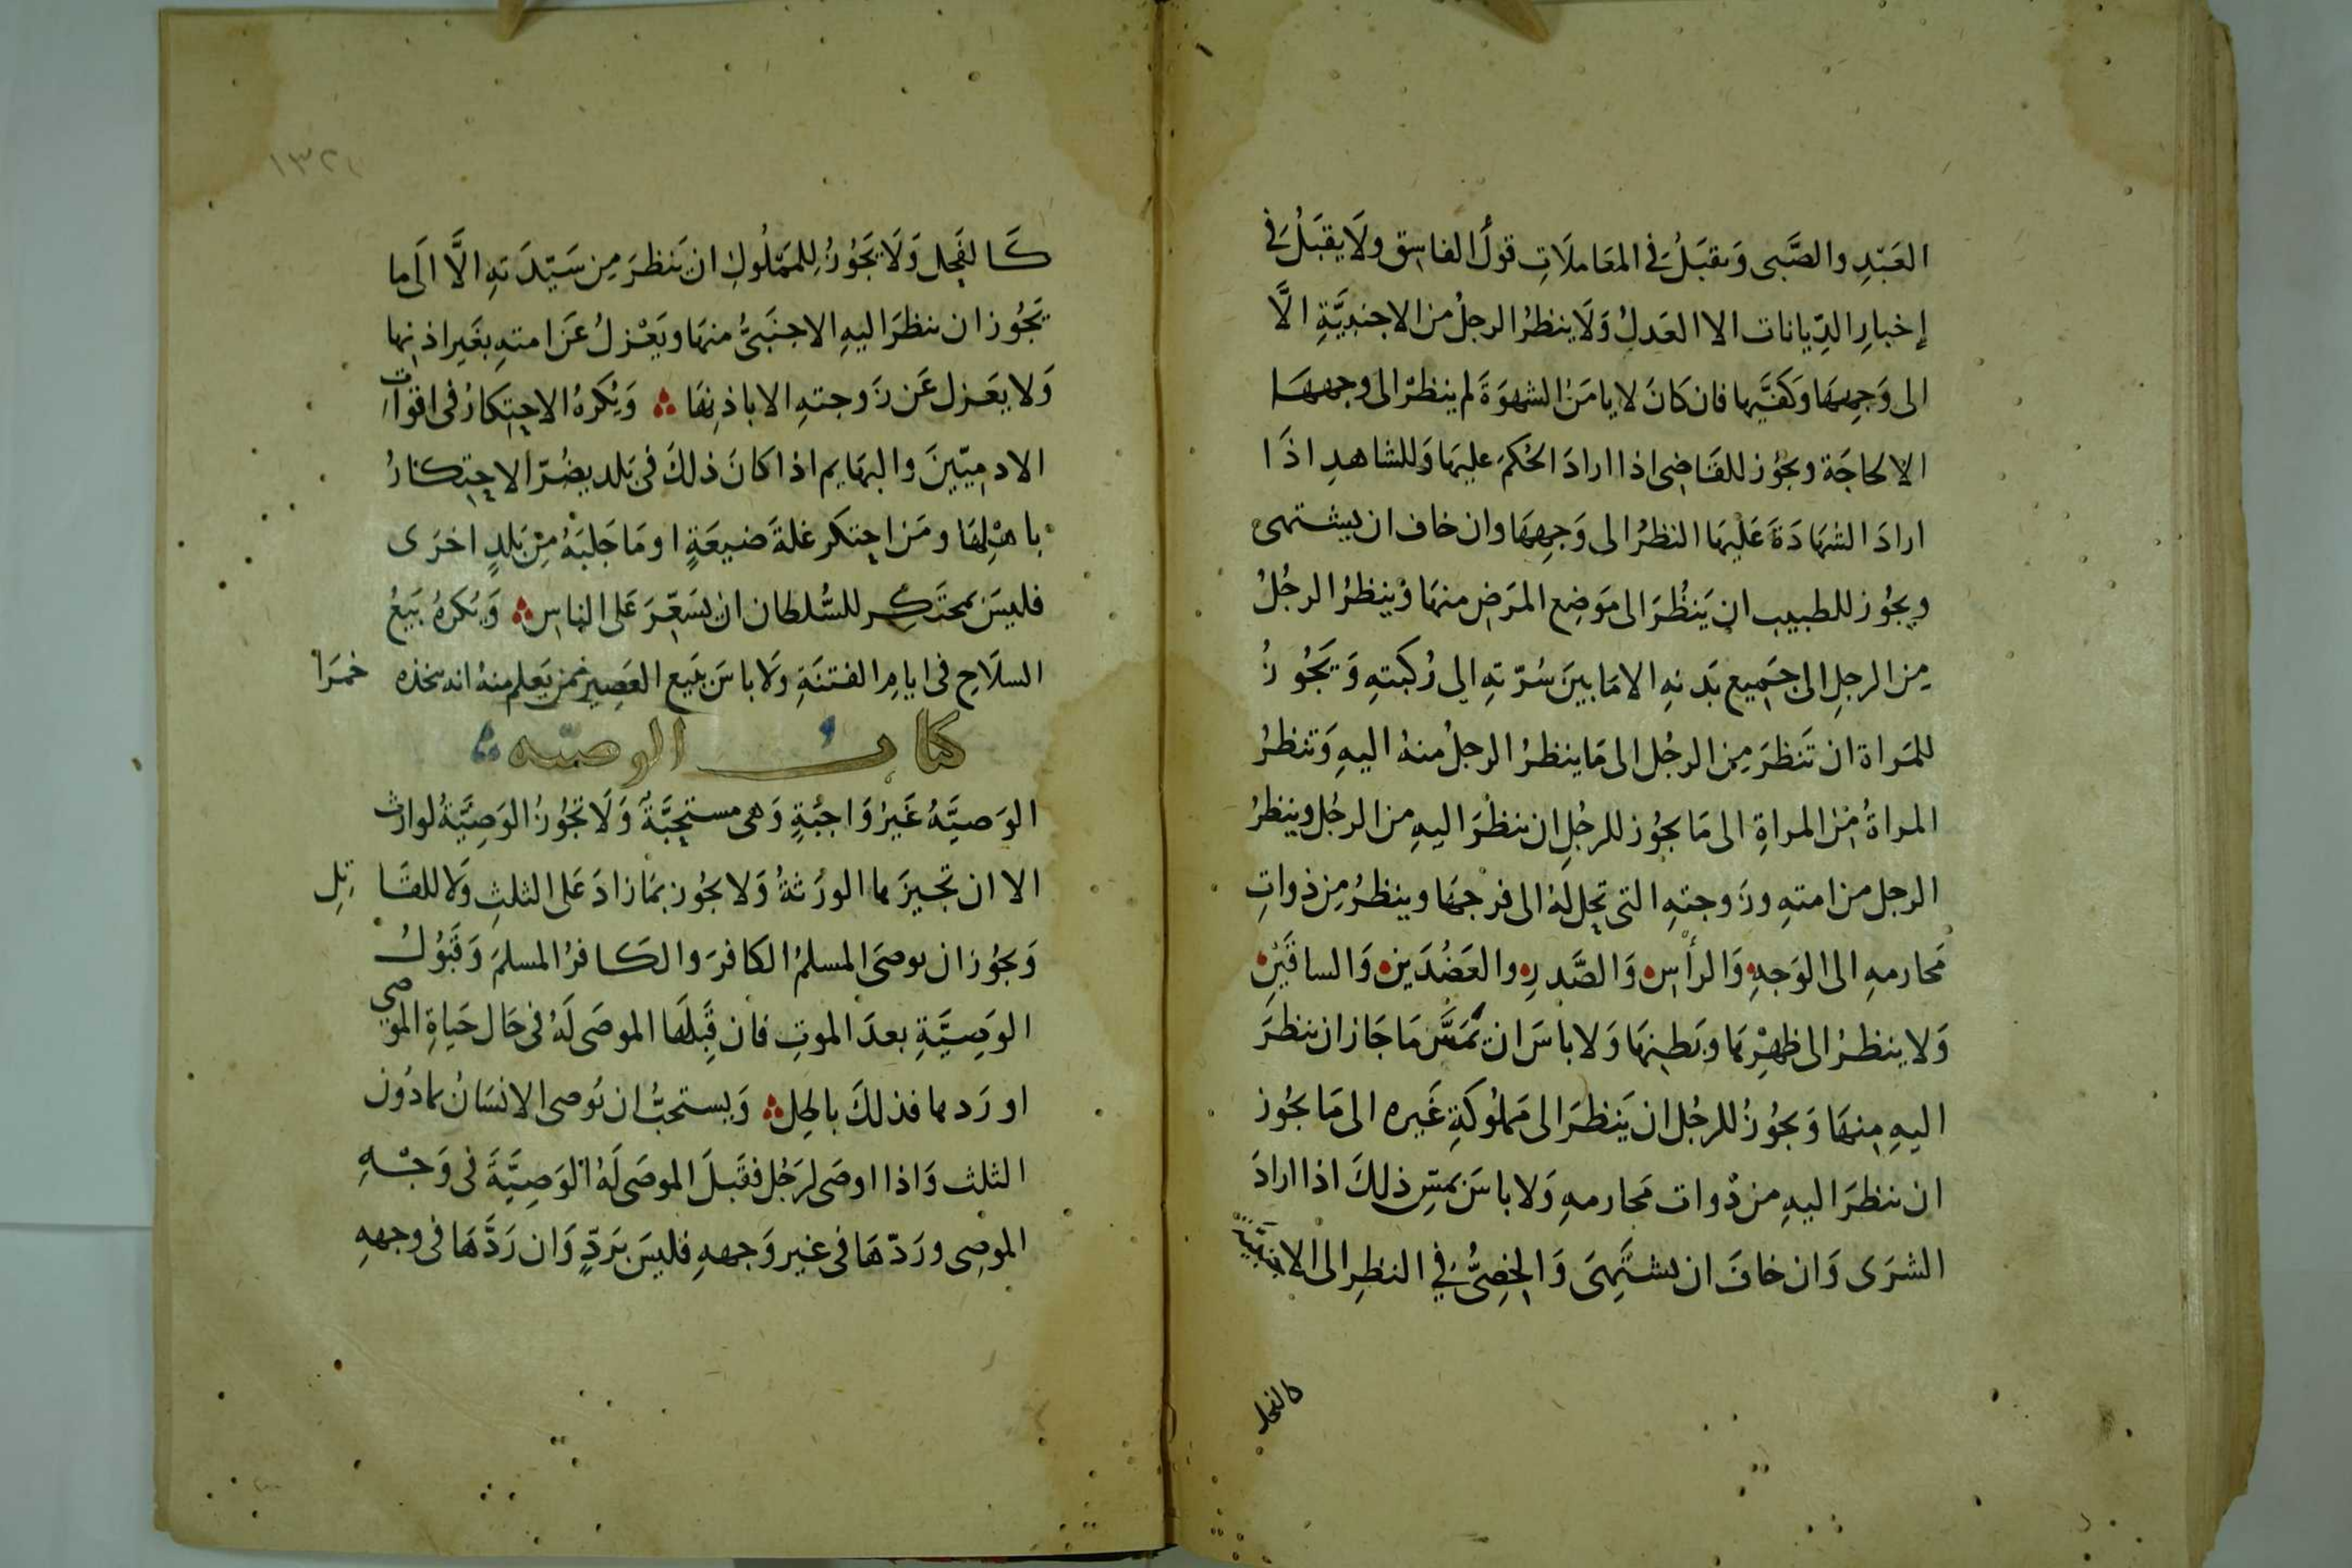 العَبْدِ والصَّبى وَيقبَلُ فى المعَاملَاتِ قولُ الفاسِق ولَا يقبَلُ فى
إخبارِ الدِّيانات الا العَدلُ وَلَا ينظرُ الرجلُ من الاجنبيَّةِ الَّا
الى وَجهِهَا وَكفَّيها فان كَانَ لا يامَنُ الشهوَةَ لم ينظرْ الى وجههَا
الا لحاجَة ويجُوز للقَاضِى اذا ارادَ الحُكمَ عليهَا وَللشاهدِ اذَا
ارادَ الشهَادَةَ عَليهَا النظرُ الى وَجهِهَا وان خاف ان يشتهى
ويجُوز للطبيب ان يَنظُرَ الى مَوَضِع المرَض منهَا وَينظرُ الرجُلُ
مِن الرجلِ الى جَميع بَدَنهِ الا مَا بينَ سُرّتهِ الى رُكبَتهِ وَيَجُوزُ
للمَراة ان تَنظرَ مِن الرجُل الى مَا ينظرُ الرجلُ منهُ اليهِ وَتنظرُ
المراةُ مِنَ المراةِ الى مَا يجُوز للرجُلِ ان ينظرَ اليهِ من الرجُل وينظرُ
الرجل من امتهِ وزَوجتهِ التى تحِل لهُ الى فرجهَا وينظرُ مِن ذواتِ
مَحارمهِ الى الوَجهِ وَالرأسِ وَالصَّدرِ والعَضُدَينِ وَالساقَينِ
وَلا ينظرُ الى ظهْرِهَا وبَطنِهَا وَلا باسَ ان يَمَسَّ مَا جَاز ان ينظرَ
اليهِ مِنهَا وَيجُوزُ للرجُل ان يَنظرَ الى مَملُوكَةِ غَيره الى مَا يجُوز
ان ينظرَ اليهِ من ذوات مَحارمهِ وَلا باسَ بمَسِّ ذلكَ اذا ارادَ
الشرَى وَان خافَ ان يشتَهِىَ وَالخِصِىُّ فى النظرِ الى الاجنبيَّةِ
كالفحل
كَالفَحِل وَلَا يَجُوزُ لِلمَملُوكِ ان يَنظرَ مِن سَيّدَتهِ الَّا الَى مَا
يَجُوز ان ينظرَ اليهِ الاجنَبىُّ منهَا ويَعْزلُ عَن امتهِ بغَيرِ اذنِها
وَلا يعَزل عَن زَوجتهِ الا باذنِهَا وَيُكرَهُ الاحِتكارُ فى اقوات
الادمِيّينَ والبهَايم اذا كانَ ذلكَ فى بَلد يضُرّ الاحِتكارُ
باهلِهَا ومَن احتكَر غلةَ ضيعَةٍ او مَا جَلبَهُ مِن بَلدٍ اخرَى
فليسَ بمحتَكِر للسُّلطان ان يسَعِّرَ عَلى الناسِ وَيُكرهُ بَيعُ
السلَاحِ فى ايامِ الفتنَةِ وَلا باسَ بَبيع العَصِير ممن يَعلم منهُ انه يتخذه خمرَاً
كتابُ الوصيّه
الوَصيَّهُ غَيرُ وَاجبَةٍ وَهى مستحبَّةٌ وَلَا تجُوزُ الوَصِيَّةُ لوارث
الا ان تجيزَها الورَثةُ وَلا يجُوز بمَا زادَ عَلى الثلثِ وَلا للقَاتِلِ
وَيجُوز ان يوصىَ المسلمُ الكافرَ والكَافرُ المسلمَ وَقَبُولُ
الوَصِيَّةِ بعدَ الموتِ فان قَبِلَهَا الموصَى لَهُ فى حَال حَياةِ الموصى
او رَدها فذلكَ باطِل وَيستحبُّ ان يُوصى الانسَانُ بمَا دُون
الثلث وَاذا اوصَى لرَجُل فقَبلَ الموصَى لَهُ الوَصِيَّةَ فى وَجْهِ
الموصِى ورَدّهَا فى غير وَجههِ فليسَ بَردٍّ وَان رَدَّهَا فى وجههِ